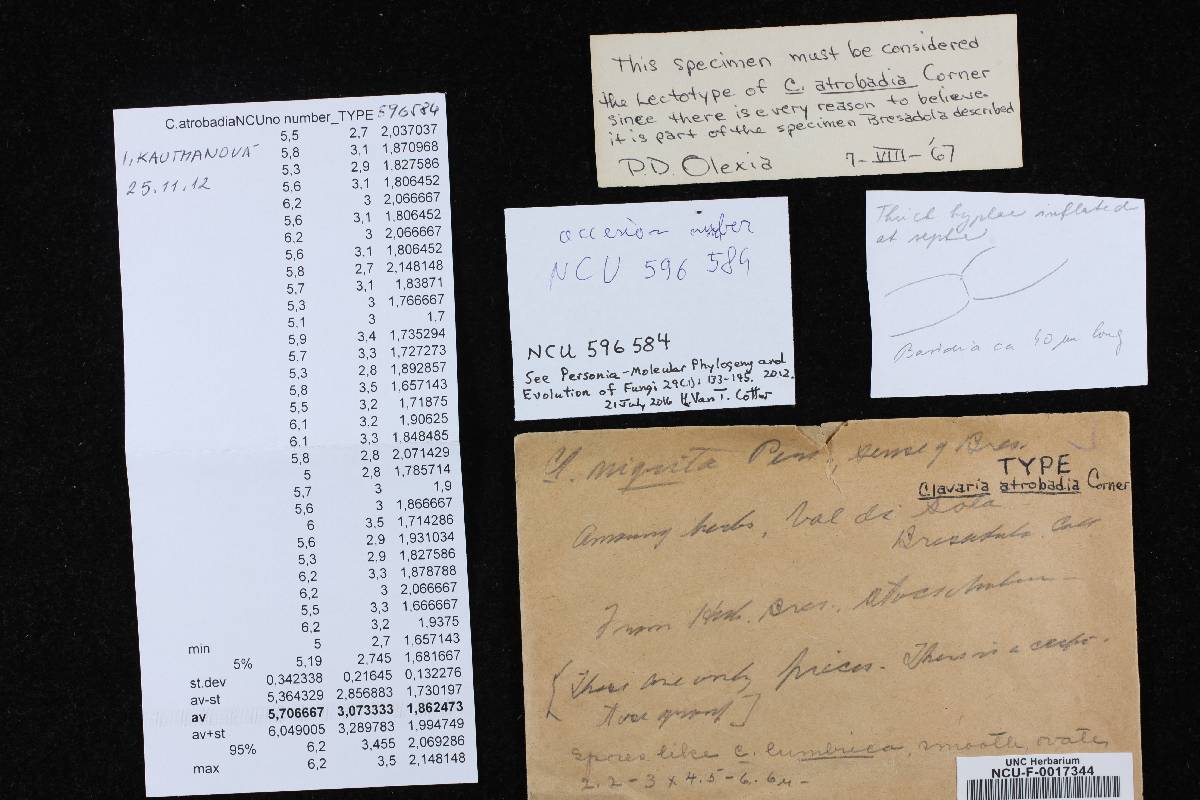 C.atrobadiaNCUno number_TYPE 596584
I, KAUTMANOVÁ
25.11.12
5,5 2,7 2,037037
5,8 3,1 1,870968
5,3 2,9 1,827586
5,6 3,1 1,806452
6,2 3 2,066667
5,6 3,1 1,806452
6,2 3 2,066667
5,6 3,1 1,806452
5,8 2,7 2,148148
5,7 3,1 1,83871
5,3 3 1,766667
5,1 3 1,7
5,9 3,4 1,735294
5,7 3,3 1,727273
5,3 2,8 1,892857
5,8 3,5 1,657143
5,5 3,2 1,71875
6,1 3,2 1,90625
6,1 3,3 1,848485
5,8 2,8 2,071429
5 2,8 1,785714
5,7 3 1,9
5,6 3 1,866667
6 3,5 1,714286
5,6 2,9 1,931034
5,3 2,9 1,827586
6,2 3,3 1,878788
6,2 3 2,066667
5,5 3,3 1,666667
6,2 3,2 1,9375
min 5 2,7 1,657143
5% 5,19 2,745 1,681667
st.dev 0,342338 0,21645 0,132276
av-st 5,364329 2,856883 1,730197
av 5,706667 3,073333 1,862473
av+st 6,049005 3,289783 1,994749
95% 6,2 3,455 2,069286
max 6,2 3,5 2,148148
This specimen must be considered
the Lectotype of C. atrobadia Corner
since there is every reason to believe
it is part of the specimen Bresadola described
P.D. Olexia 7-VIII-'67
accesion number
NCU 596 584
NCU 596 584
See Personia-Molecular Phylogeny and
Evolution of Fungi 29(1): 133-145. 2012.
21 July 2016 H. Van T. Cotter
Thick hyphae inflated
at septa
Basidia ca 40 µm long
Cl. nigrita Pers. sense of Bres.
TYPE
Clavaria atrobadia Corner
Among herbs, Val di Sole
Bresadola. Coll
From Herb. Bres. Stockholm
[There are only pieces. There is a
spores like C. lumbrica, smooth, ovate,
2.2-3 x 4.5-6.6µ-
UNC Herbarium
NCU-F-0017344